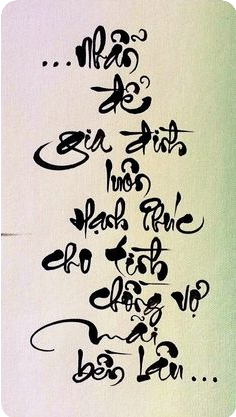 ...nhẫn
để
gia đình
luôn
hạnh phúc
cho tình
chồng vợ
mãi
bền lâu...